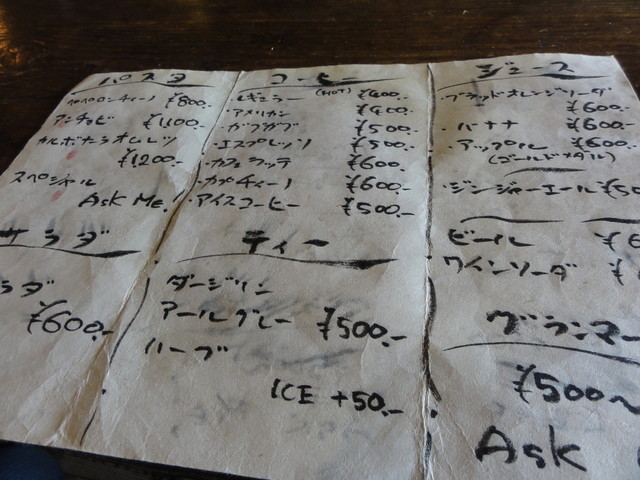 パスタ
ペペロンチーノ ¥800.-
アンチョビ ¥1,100.-
カルボナーラオムレツ
¥1,200.-
スペシャル
Ask Me!
サラダ
ラダ
¥600.-
コーヒー
・レギュラー (HOT) ¥400.-
・アメリカン ¥400.-
・ガブガブ ¥500.-
・エスプレッソ ¥500.-
・カフェラッテ ¥600.-
・カプチーノ ¥600.-
・アイスコーヒー ¥500.-
ティー
ダージリン
アールグレー ¥500.-
ハーブ
ICE +50.-
ジュース
・ブラッドオレンジソーダ
¥600.-
・バナナ ¥600.-
・アップル ¥600.-
(ゴールドメダル)
・ジンジャーエール ¥50
ビール ¥6
ワインソーダ ¥
グランマー
¥500~
Ask